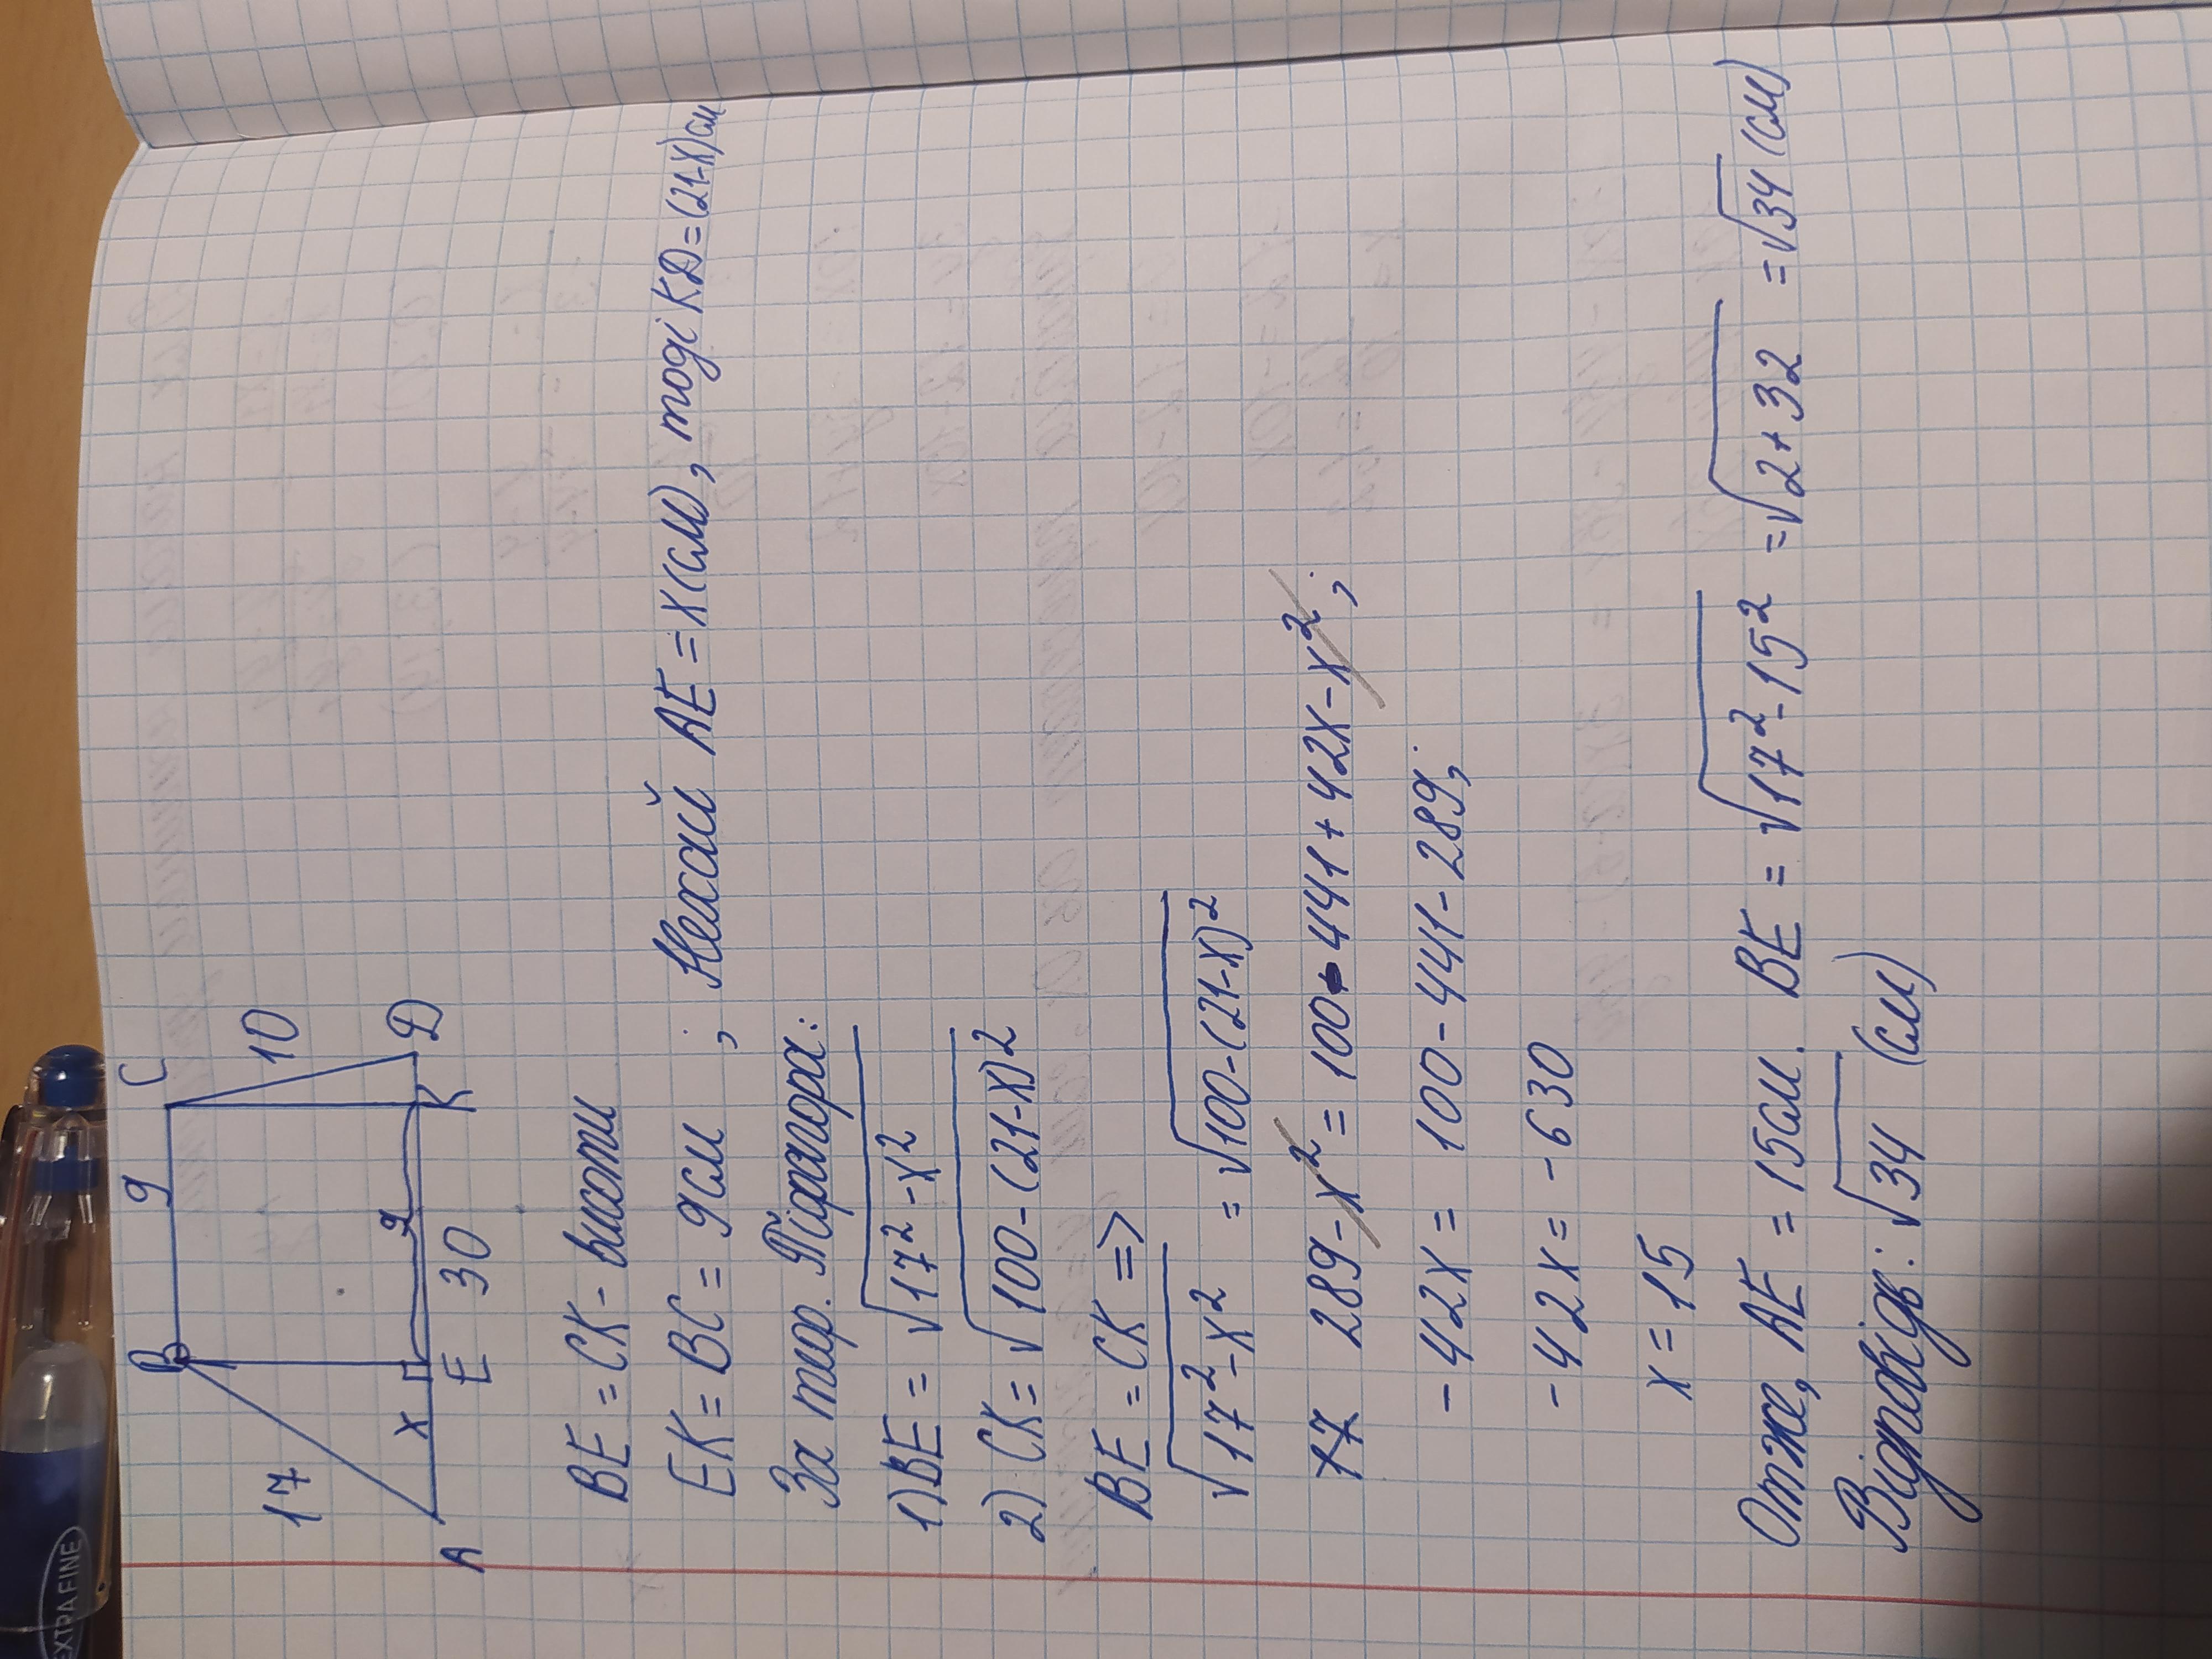 B 9 C
17 10
x 9
A E K Д
30
BE = CK - висоти
EK = BC = 9см ; Нехай AE = x(см), тоді KД = (21-x)см
За теор. Піфагора:
1) BE = √17² - x²
2) CK = √100 - (21-x)²
BE = CK =>
√17² - x² = √100 - (21-x)²
17 289 - x² = 100 - 441 + 42x - x²;
- 42x = 100 - 441 - 289;
- 42x = - 630
x = 15
Отже, AE = 15см. BE = √17² - 15² = √2 + 32 = √34 (см)
Відповідь: √34 (см)
EXTRAFINE